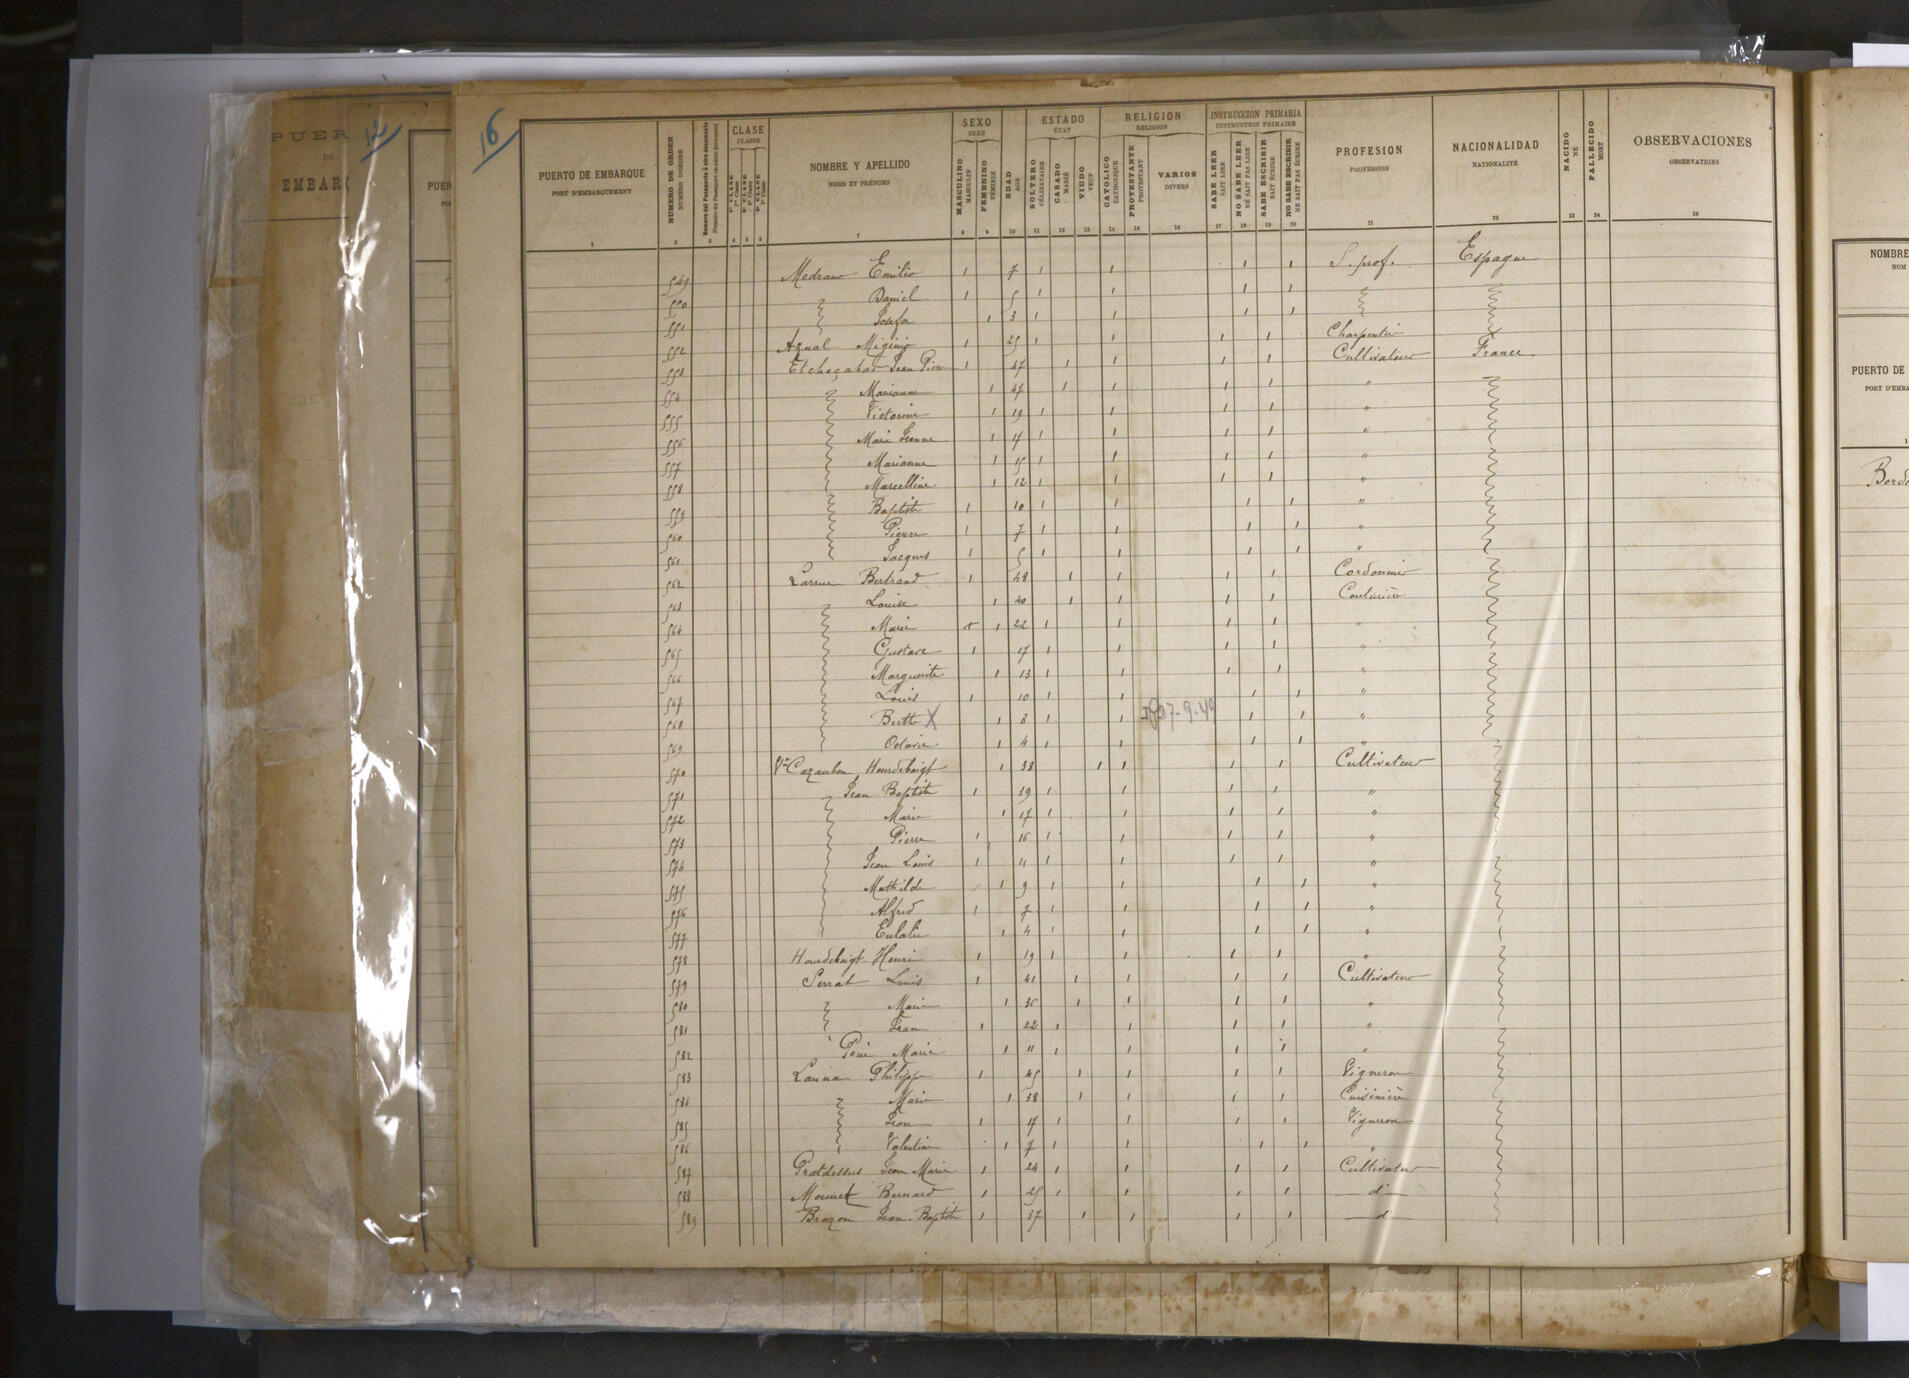 PUER
DE
EMBARC
12
PUER
PO
16
PUERTO DE EMBARQUE
PORT D'EMBARQUEMENT
NUMERO DE ORDEN
NUMÉRO D'ORDRE
Numero del Pasaporte ú otro documento
Numéro du Passeport ou autre document
CLASE
CLASSE
1ª CLASE
1re Classe
2ª CLASE
2e Classe
3ª CLASE
3e Classe
NOMBRE Y APELLIDO
NOMS ET PRÉNOMS
SEXO
SEXE
MASCULINO
MASCULIN
FEMENINO
FÉMININ
EDAD
AGE
ESTADO
ÉTAT
SOLTERO
CÉLIBATAIRE
CASADO
MARIÉ
VIUDO
VEUF
RELIGION
RELIGION
CATOLICO
CATHOLIQUE
PROTESTANTE
PROTESTANT
VARIOS
DIVERS
INSTRUCCION PRIMARIA
INSTRUCTION PRIMAIRE
SABE LEER
SAIT LIRE
NO SABE LEER
NE SAIT PAS LIRE
SABE ESCRIBIR
SAIT ÉCRIRE
NO SABE ESCRIBIR
NE SAIT PAS ÉCRIRE
PROFESION
PROFESSION
NACIONALIDAD
NATIONALITÉ
NACIDO
NÉ
FALLECIDO
MORT
OBSERVACIONES
OBSERVATIONS
1 2 3 4 5 6 7 8 9 10 11 12 13 14 15 16 17 18 19 20 21 22 23 24 25
549 Medrano Emilio 1 7 1 1 1 1 S. prof. Espagne
550 Daniel 1 5 1 1 1 1
551 Josefa 1 3 1 1 1 1
552 Aznal Miginio 1 25 1 1 1 1 Charpentier
553 Etcheçahar Jean Pierre 1 47 1 1 1 1 Cultivateur France
554 Marianne 1 47 1 1 1 1 "
555 Victorine 1 19 1 1 1 1 "
556 Marie Jeanne 1 17 1 1 1 1 "
557 Marianne 1 15 1 1 1 1 "
558 Marcelline 1 12 1 1 1 1 "
559 Baptiste 1 10 1 1 1 1 "
560 Pierre 1 7 1 1 1 1 "
561 Jacques 1 5 1 1 1 1 "
562 Larrue Bertrand 1 48 1 1 1 1 Cordonnier
563 Louise 1 40 1 1 1 1 Couturière
564 Marie 1 22 1 1 1 1 "
565 Gustave 1 17 1 1 1 1 "
566 Marguerite 1 13 1 1 1 1 "
567 Louis 1 10 1 1 1 1 "
568 Berthe X 1 8 1 1 7-9-40 1 1 "
569 Octavie 1 4 1 1 1 1 "
570 Vve Cazaubon Hourdebaigt 1 38 1 1 1 1 Cultivateur
571 Jean Baptiste 1 19 1 1 1 1 "
572 Marie 1 17 1 1 1 1 "
573 Pierre 1 16 1 1 1 1 "
574 Jean Louis 1 11 1 1 1 1 "
575 Mathilde 1 9 1 1 1 1 "
576 Alfred 1 7 1 1 1 1 "
577 Eulalie 1 4 1 1 1 1 "
578 Hourdebaigt Henri 1 19 1 1 1 1 "
579 Serrat Louis 1 41 1 1 1 1 Cultivateur
580 Marie 1 36 1 1 1 1 "
581 Jean 1 22 1 1 1 1 "
582 Marie 1 11 1 1 1 1 "
583 Lanna Philippe 1 45 1 1 1 1 Vigneron
584 Marie 1 38 1 1 1 1 Cuisinière
585 Jean 1 17 1 1 1 1 Vigneron
586 Valentine 1 7 1 1 1 1 "
587 Pratdessus Jean Marie 1 24 1 1 1 1 Cultivateur
588 Mounet Bernard 1 25 1 1 1 1 d°
589 Brazon Jean-Baptiste 1 37 1 1 1 1 d°
NOMBRE
NOM
PUERTO DE
PORT D'EMBA
1
Borde